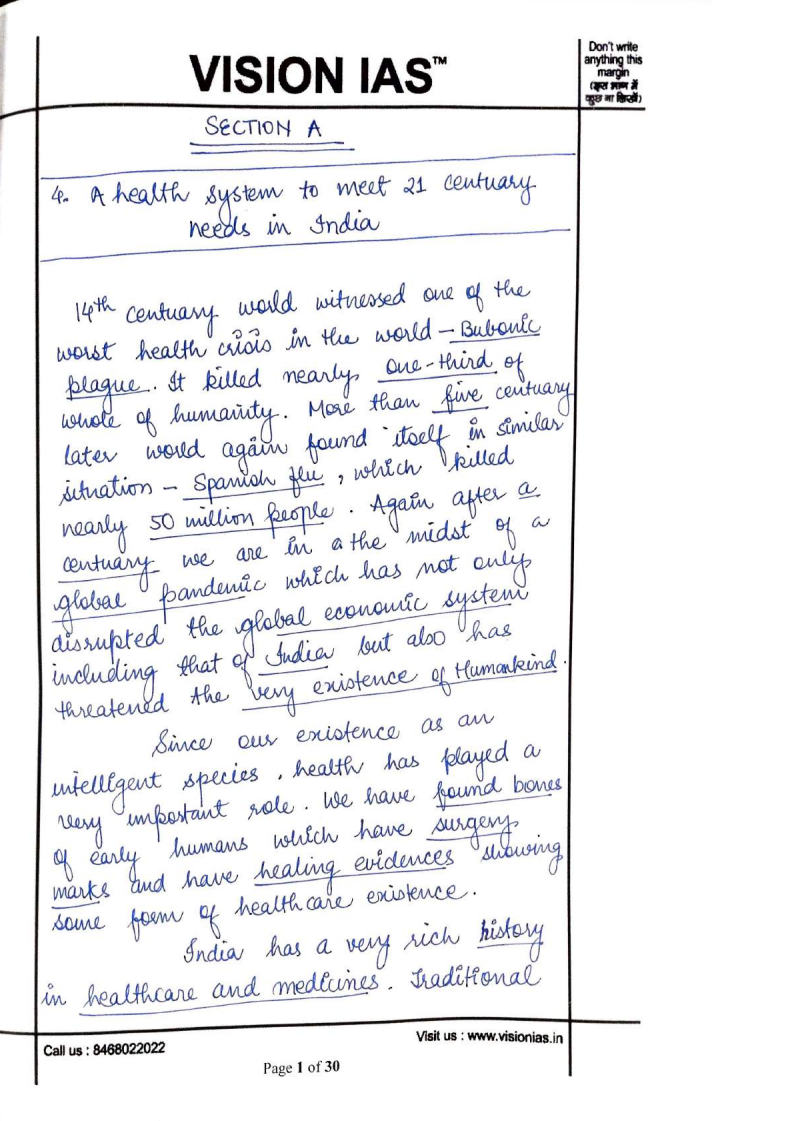 VISION IAS™
Don't write
anything this
margin
(इस भाग में
कुछ ना लिखें)
SECTION A
4. A health system to meet 21 centuary
needs in India
14th centuary world witnessed one of the
worst health crisis in the world – Bubonic
plague. It killed nearly one-third of
whole of humanity. More than five centuary
later world again found itself in similar
situation – Spanish flu, which killed
nearly 50 million people. Again after a
centuary we are in a the midst of a
global pandemic which has not only
disrupted the global economic system
including that of India but also has
threatened the very existence of Humankind.
Since our existence as an
intelligent species, health has played a
very important role. We have found bones
of early humans which have surgery
marks and have healing evidences showing
some form of healthcare existence.
India has a very rich history
in healthcare and medicines. Traditional
Call us : 8468022022
Visit us : www.visionias.in
Page 1 of 30